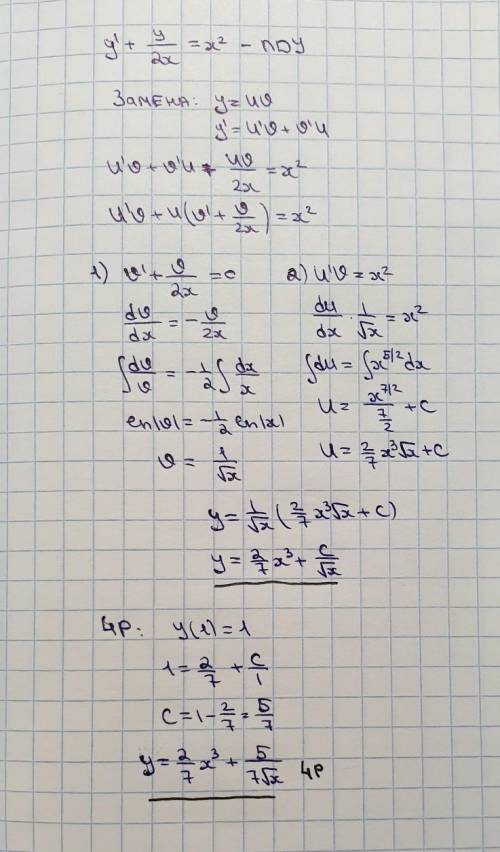 y' + y/2x = x² - ЛДУ
ЗАМЕНА: y = uϑ
y' = u'ϑ + ϑ'u
u'ϑ + ϑ'u + uϑ/2x = x²
u'ϑ + u(ϑ' + ϑ/2x) = x²
1) ϑ' + ϑ/2x = 0
dϑ/dx = -ϑ/2x
∫dϑ/ϑ = -1/2 ∫dx/x
ln|ϑ| = -1/2 ln|x|
ϑ = 1/√x
2) u'ϑ = x²
du/dx · 1/√x = x²
∫du = ∫x^(5/2) dx
u = x^(7/2)/(7/2) + C
u = 2/7 x³√x + C
y = 1/√x (2/7 x³√x + C)
y = 2/7 x³ + C/√x
ЧР: y(1) = 1
1 = 2/7 + C/1
C = 1 - 2/7 = 5/7
y = 2/7 x³ + 5/7√x ЧР